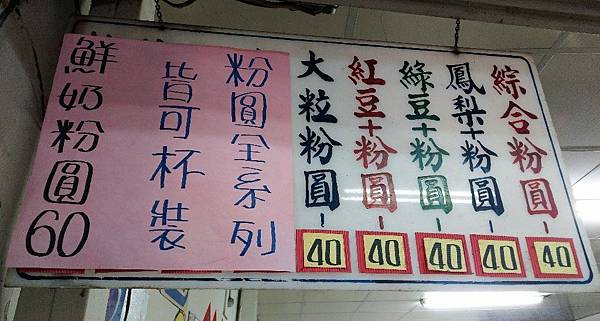 綜合粉圓-40
鳳梨+粉圓-40
綠豆+粉圓-40
紅豆+粉圓-40
大粒粉圓-40
粉圓全系列
皆可杯裝
鮮奶粉圓60